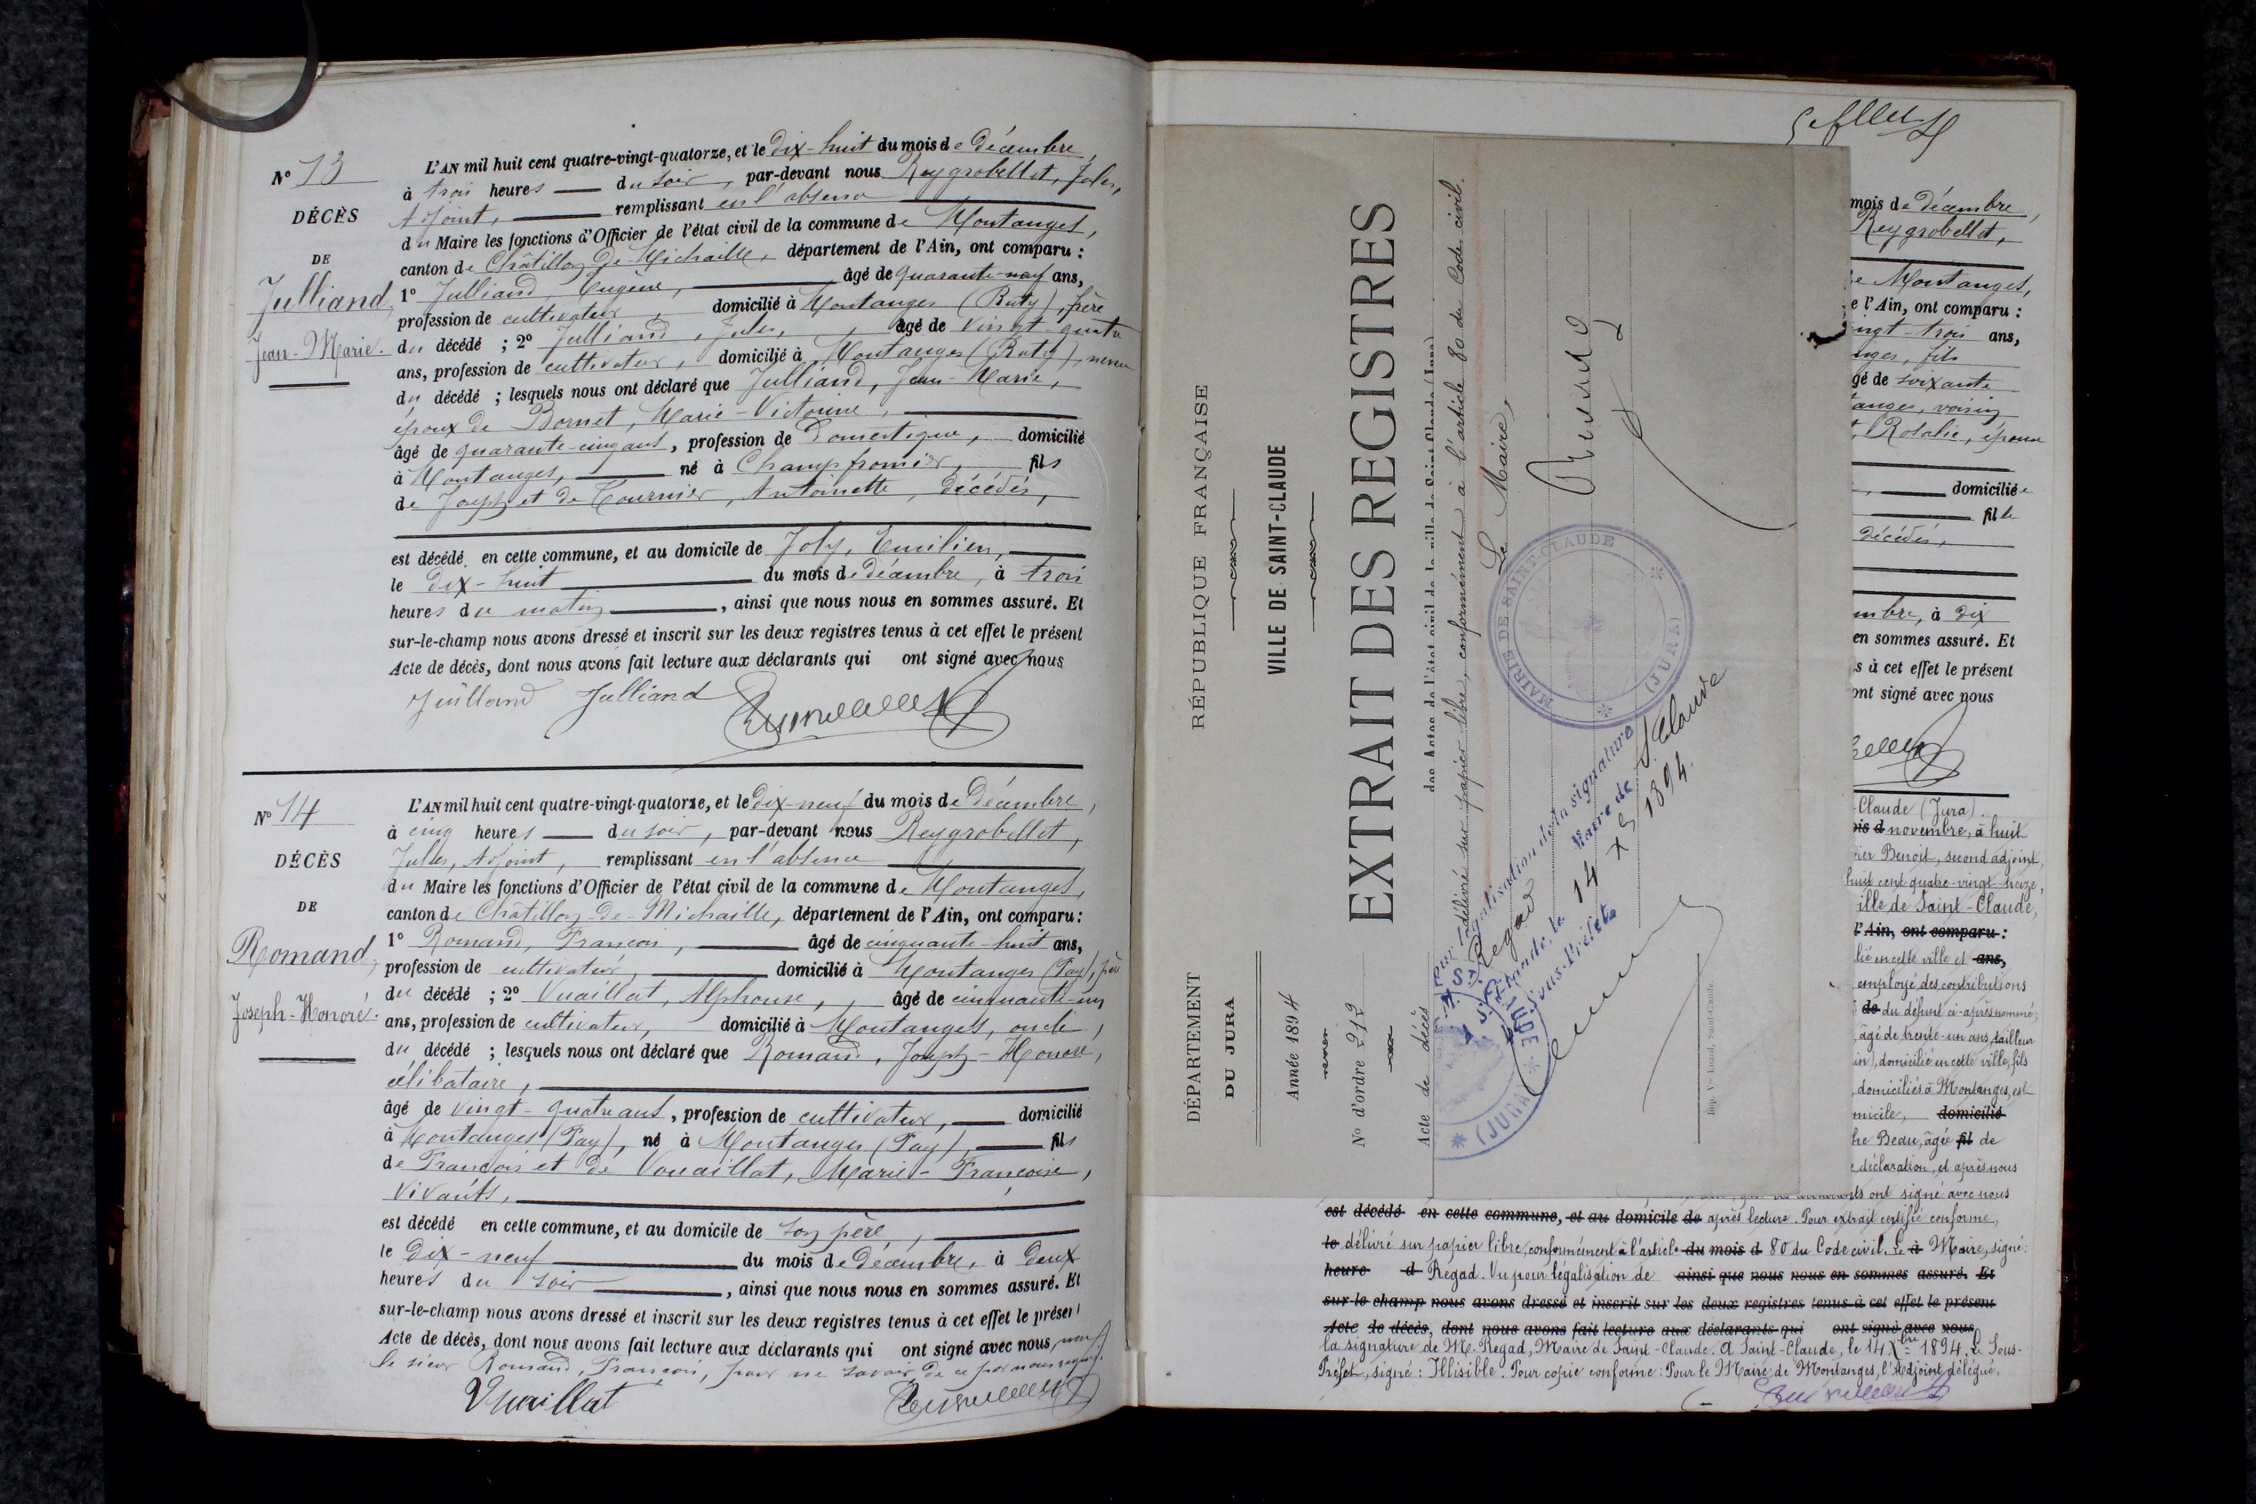 N° 13
DÉCÈS
DE
Julliand,
Jean-Marie.
L'AN mil huit cent quatre-vingt-quatorze, et le dix-huit du mois de décembre,
à trois heures du soir, par-devant nous Reygrobellet, Jules,
Adjoint, remplissant en l'absence
du Maire les fonctions d'Officier de l'état civil de la commune de Montanges,
canton de Châtillon-de-Michaille, département de l'Ain, ont comparu :
1° Julliand, Eugène, âgé de quarante-neuf ans,
profession de cultivateur, domicilié à Montanges (Ruty), frère
du décédé ; 2° Julliand, Jules, âgé de vingt-quatre
ans, profession de cultivateur, domicilié à Montanges (Ruty), neveu
du décédé ; lesquels nous ont déclaré que Julliand, Jean-Marie,
époux de Bornet, Marie-Victorine,
âgé de quarante-cinq ans, profession de Domestique, domicilié
à Montanges, né à Champfromier, fils
de Joseph et de Tournier, Antoinette, décédés,
est décédé en cette commune, et au domicile de Joly, Emilien,
le dix-huit du mois de décembre, à trois
heures du matin, ainsi que nous nous en sommes assuré. Et
sur-le-champ nous avons dressé et inscrit sur les deux registres tenus à cet effet le présent
Acte de décès, dont nous avons fait lecture aux déclarants qui ont signé avec nous
Juilland Julliand
N° 14
DÉCÈS
DE
Romand,
Joseph-Honoré.
L'AN mil huit cent quatre-vingt-quatorze, et le dix-neuf du mois de Décembre,
à cinq heures du soir, par-devant nous Reygrobellet,
Jules, Adjoint, remplissant en l'absence
du Maire les fonctions d'Officier de l'état civil de la commune de Montanges,
canton de Châtillon-de-Michaille, département de l'Ain, ont comparu :
1° Romand, François, âgé de cinquante-huit ans,
profession de cultivateur, domicilié à Montanges (Pay), père
du décédé ; 2° Vuaillat, Alphonse, âgé de cinquante-un
ans, profession de cultivateur, domicilié à Montanges, oncle,
du décédé ; lesquels nous ont déclaré que Romand, Joseph-Honoré,
célibataire,
âgé de vingt-quatre ans, profession de cultivateur, domicilié
à Montanges (Pay), né à Montanges (Pay), fils
de François et de Vouaillat, Marie-Françoise,
vivants,
est décédé en cette commune, et au domicile de son père,
le dix-neuf du mois de décembre, à deux
heures du soir, ainsi que nous nous en sommes assuré. Et
sur-le-champ nous avons dressé et inscrit sur les deux registres tenus à cet effet le présent
Acte de décès, dont nous avons fait lecture aux déclarants qui ont signé avec nous
le sieur Romand, François, pour ne savoir, de ce par nous requis.
Vuaillat
RÉPUBLIQUE FRANÇAISE
VILLE DE SAINT-CLAUDE
EXTRAIT DES REGISTRES
des Actes de l'état civil de la ville de Saint-Claude (Jura)
DÉPARTEMENT
DU JURA
Année 1894
N° d'ordre 213
Acte de décès
délivré sur papier libre, conformément à l'article 80 du Code civil.
Le Maire,
MAIRIE DE SAINT-CLAUDE
(JURA)
légalisation de la signature
Regad Maire de St Claude
St Claude, le 14 Xbre 1894.
Sous-Préfet
(JURA)
Imp. Ve Enard, Saint-Claude
mois de décembre,
Reygrobellet,
de Montanges,
de l'Ain, ont comparu :
vingt-trois ans,
fils
âgé de soixante
voisin
Rosalie, épouse
domiciliée
fille
décédés,
décembre, à dix
en sommes assuré. Et
à cet effet le présent
ont signé avec nous
Claude (Jura).
mois d novembre, à huit
Benoit, second adjoint,
huit cent quatre-vingt-treize,
ville de Saint-Claude,
l'Ain, ont comparu :
en cette ville et ans,
employé des contributions
de du défunt ci-après nommé ;
âgé de trente-un ans, tailleur
domicilié en cette ville, fils
domiciliés à Montanges, est
domicile, domicilié
Beau, âgé fil de
déclaration, et après nous
ont signé avec nous
est décédé en cette commune, et au domicile de après lecture. Pour extrait certifié conforme,
le délivré sur papier libre, conformément à l'article du mois d 80 du Code civil. Le à Maire, signé :
heure d Regad. Vu pour légalisation de ainsi que nous nous en sommes assuré. Et
sur-le-champ nous avons dressé et inscrit sur les deux registres tenus à cet effet le présent
Acte de décès, dont nous avons fait lecture aux déclarants qui ont signé avec nous
la signature de M. Regad, Maire de Saint-Claude. A Saint-Claude, le 14 Xbre 1894. Le Sous-
Préfet, signé : Illisible. Pour copie conforme : Pour le Maire de Montanges, l'Adjoint délégué,